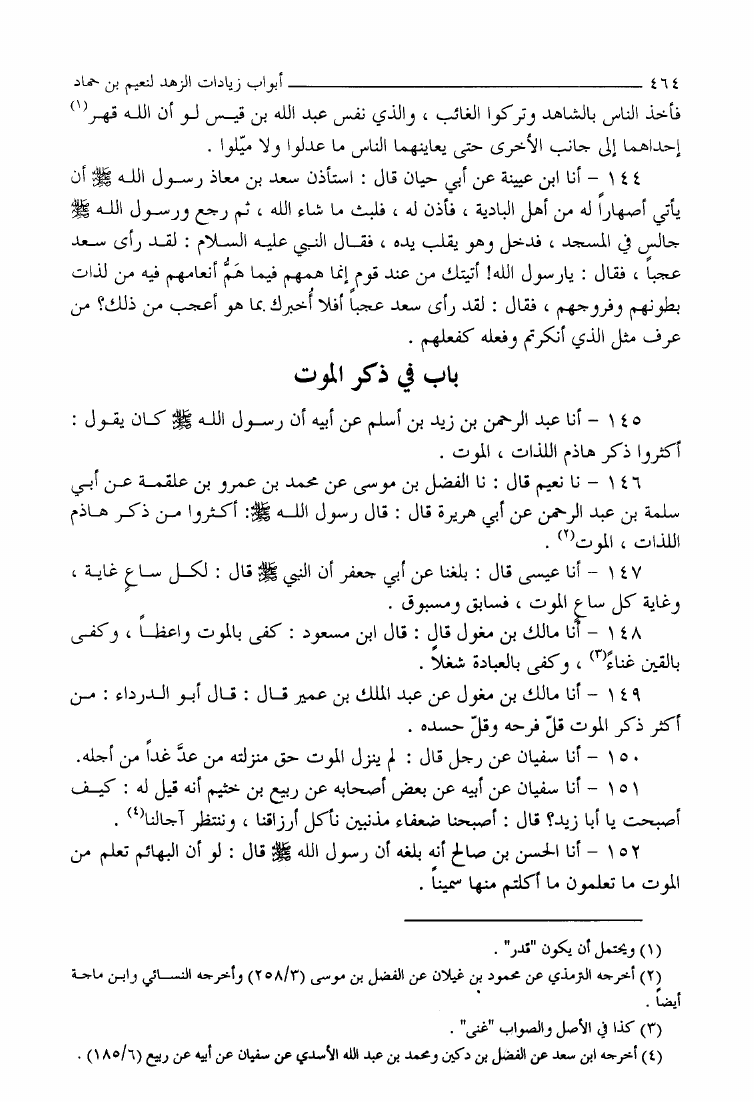 ٤٦٤ ــــــــ أبواب زيادات الزهد لنعيم بن حماد
فأخذ الناس بالشاهد وتركوا الغائب ، والذي نفس عبد الله بن قيــس لــو أن اللــه قهــر(١)
إحداهما إلى جانب الأخرى حتى يعاينهما الناس ما عدلوا ولا ميّلوا .
١٤٤ – أنا ابن عيينة عن أبي حيان قال : استأذن سعد بن معاذ رسـول اللـه ﷺ أن
يأتي أصهاراً له من أهل البادية ، فأذن له ، فلبث ما شاء الله ، ثـم رجع ورسـول اللـه ﷺ
جالس في المسجد ، فدخل وهو يقلب يده ، فقـال النبي عليـه السـلام : لقـد رأى سـعد
عجباً ، فقال : يارسول الله! أتيتك من عند قوم إنما همهم فيما هَمُّ أنعامهم فيه من لذات
بطونهم وفروجهم ، فقال : لقد رأى سعد عجباً أفلا أُخبرك بما هو أعجب من ذلك؟ من
عرف مثل الذي أنكرتم وفعله كفعلهم .
باب في ذكر الموت
١٤٥ – أنا عبد الرحمن بن زيد بن أسلم عن أبيه أن رسـول اللـه ﷺ كـان يقـول :
أكثروا ذكر هاذم اللذات ، الموت .
١٤٦ – نا نعيم قال : نا الفضل بن موسى عن محمد بن عمرو بن علقمـة عـن أبـي
سلمة بن عبد الرحمن عن أبي هريرة قال : قال رسول اللـه ﷺ: أكـثروا مـن ذكـر هـاذم
اللذات ، الموت(٢) .
١٤٧ – أنا عيسى قال : بلغنا عن أبي جعفر أن النبي ﷺ قال : لكـل سـاعٍ غايـة ،
وغاية كل ساع الموت ، فسابق ومسبوق .
١٤٨ – أنا مالك بن مغول قال : قال ابن مسعود : كفى بالموت واعظـاً ، وكفـى
بالقين غناءً(٣) ، وكفى بالعبادة شغلاً .
١٤٩ – أنا مالك بن مغول عن عبد الملك بن عمير قـال : قـال أبـو الـدرداء : مـن
أكثر ذكر الموت قلّ فرحه وقلّ حسده .
١٥٠ – أنا سفيان عن رجل قال : لم ينزل الموت حق منزلته من عدَّ غداً من أجله.
١٥١ – أنا سفيان عن أبيه عن بعض أصحابه عن ربيع بن خثيم أنه قيل له : كيـف
أصبحت يا أبا زيد؟ قال : أصبحنا ضعفاء مذنبين نأكل أرزاقنا ، وننتظر آجالنا(٤) .
١٥٢ – أنا الحسن بن صالح أنه بلغه أن رسول الله ﷺ قال : لو أن البهائم تعلم من
الموت ما تعلمون ما أكلتم منها سميناً .
(١) ويحتمل أن يكون "قدر" .
(٢) أخرجه الترمذي عن محمود بن غيلان عن الفضل بن موسى (٢٥٨/٣) وأخرجه النسـائي وابـن ماجـة
أيضاً .
(٣) كذا في الأصل والصواب "غنى" .
(٤) أخرجه ابن سعد عن الفضل بن دكين ومحمد بن عبد الله الأسدي عن سفيان عن أبيه عن ربيع (١٨٥/٦) .